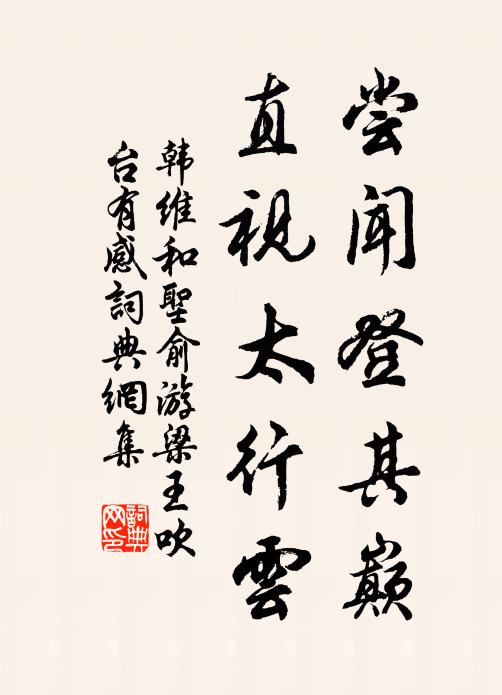 尝闻登其巅
直视太行雲
韩维和聖俞游梁王吹
台有感詞典網集
詞典
网印